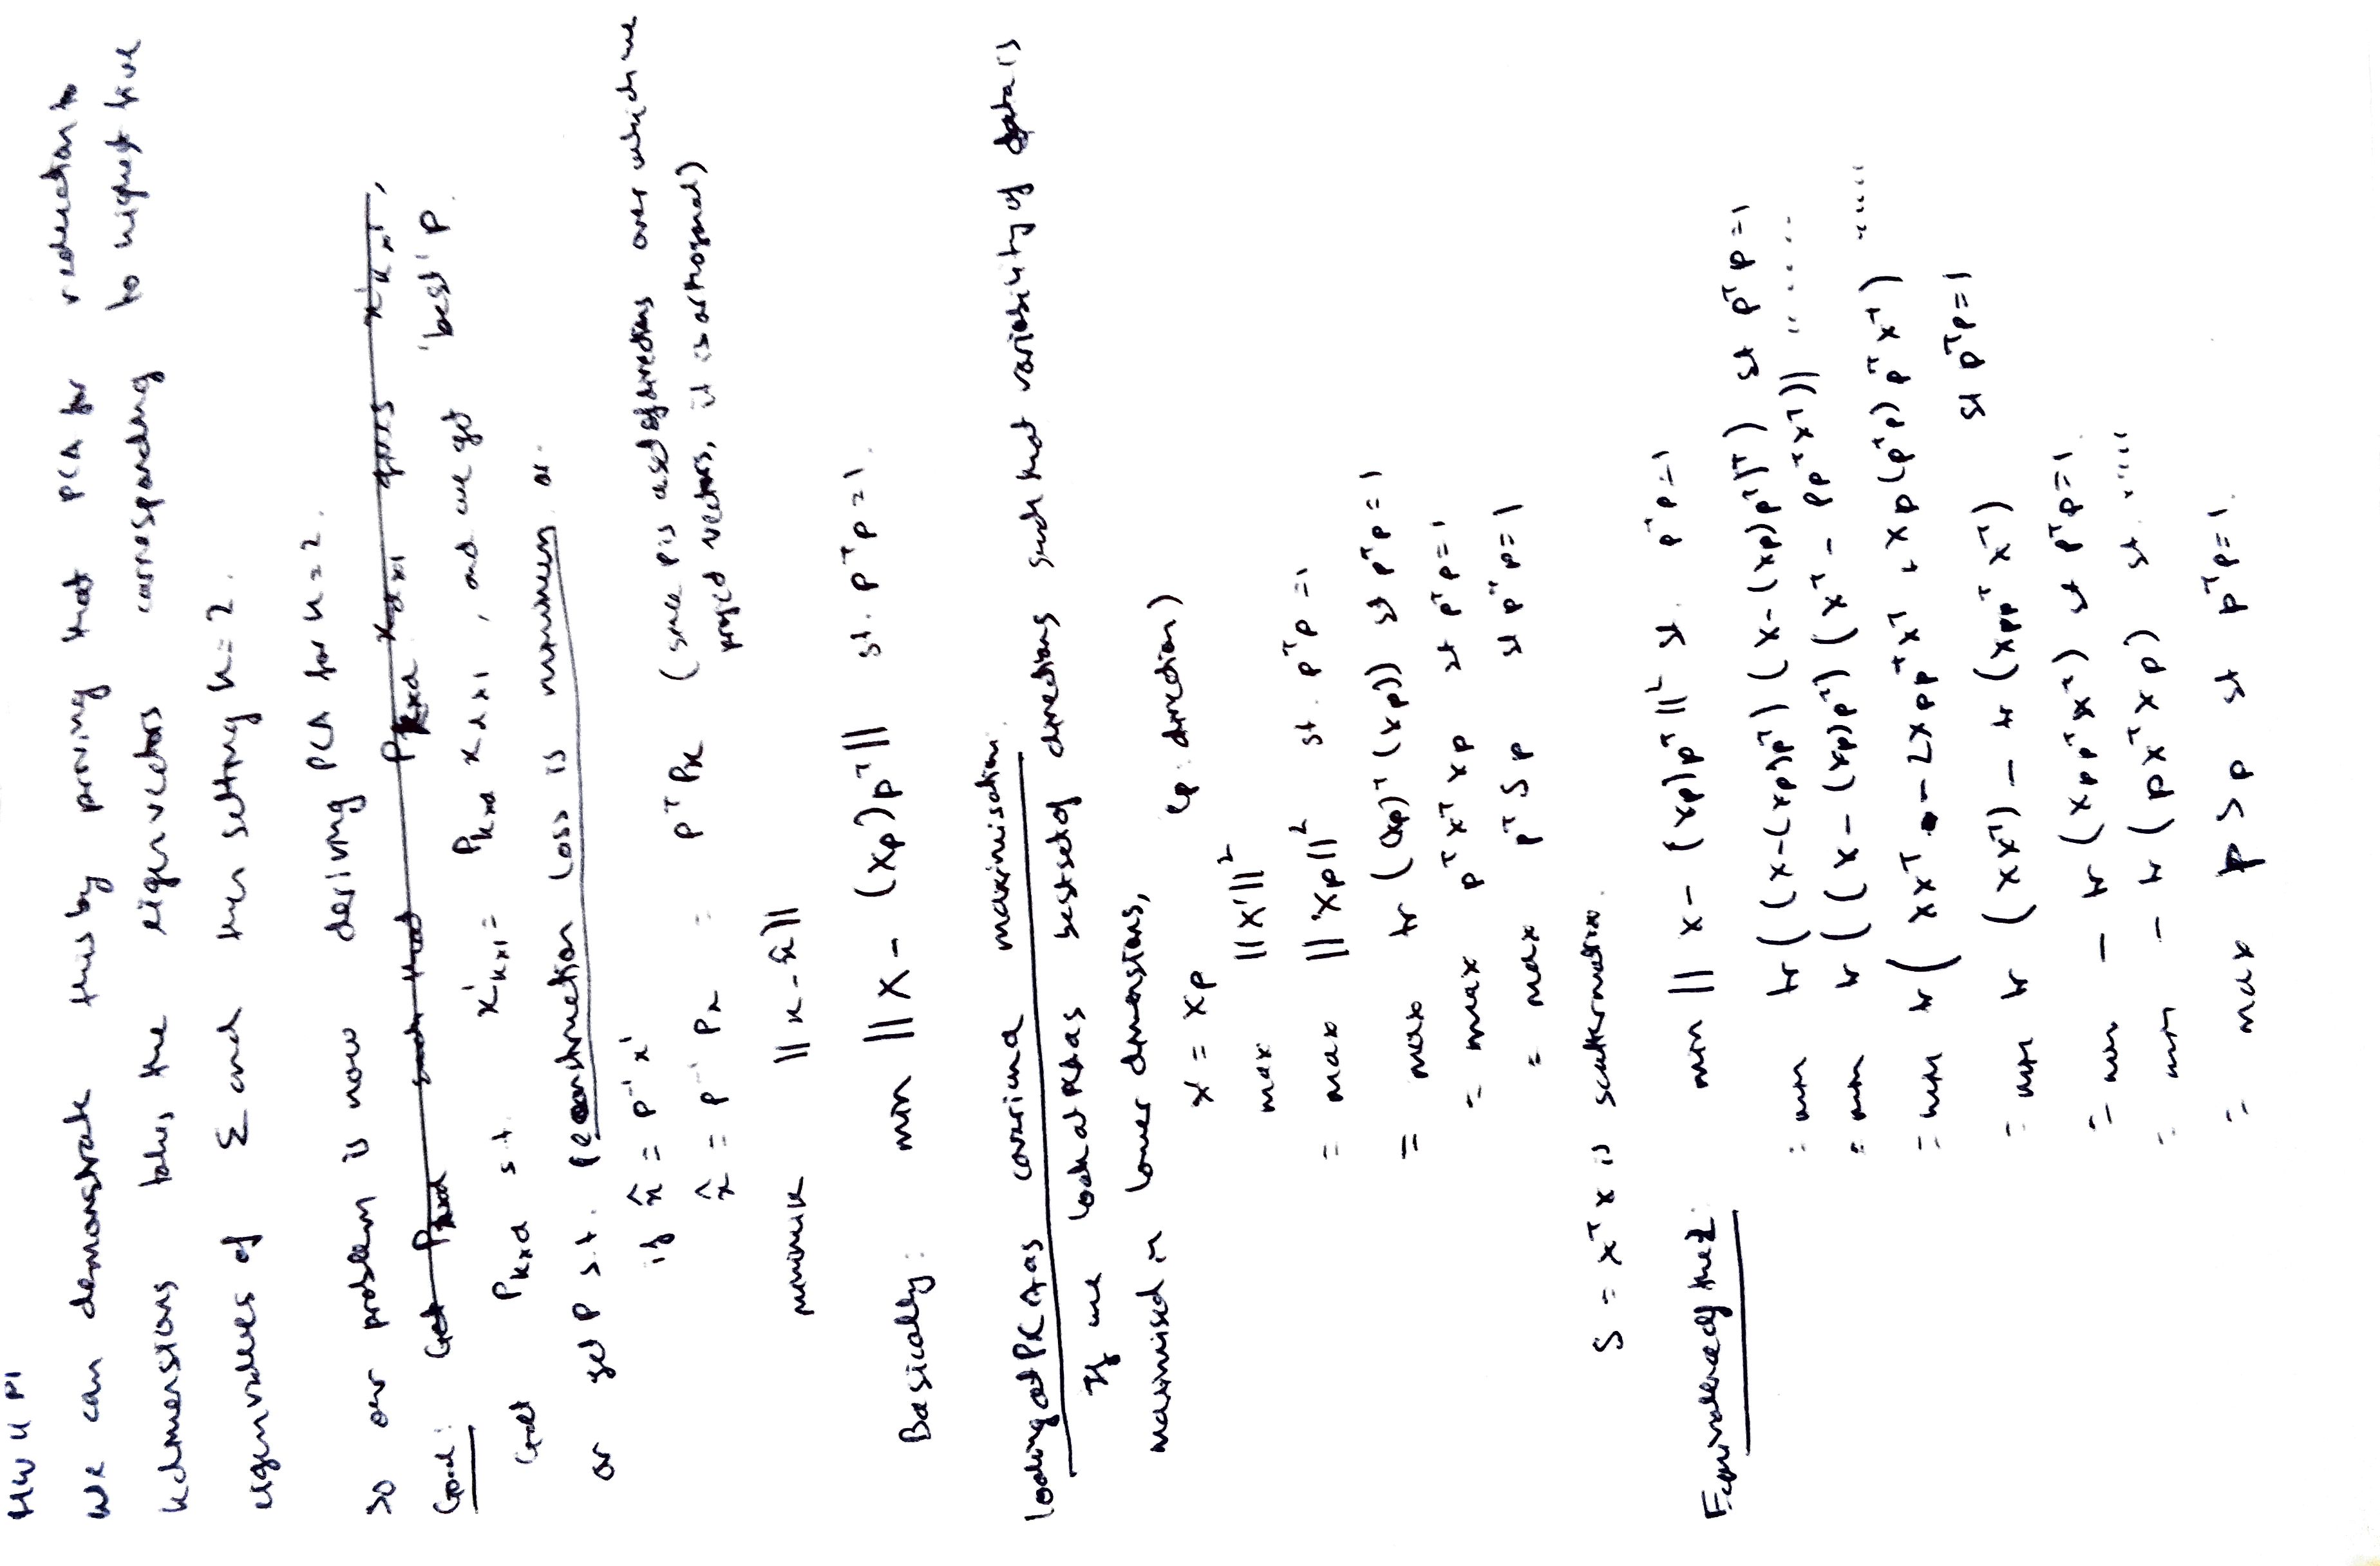 HW 4 P1
We can demonstrate this by proving that PCA for reduction to
k dimensions takes the eigenvectors corresponding to highest five
eigenvalues of Σ and then setting k = 2.
So our problem is now deriving PCA for k = 2.
Goal: Get P_kxd such that P_kxd x_dx1 gives x'_kx1,
Get P_kxd s.t. x'_kx1 = P_kxd x_dx1, and we get 'best' P.
or get P s.t. reconstruction loss is minimum or
if x̂ = P⁻¹x'
x̂ = P⁻¹Px = PᵀPx (since P is a set of directions over which we
project vectors, it is orthogonal)
minimise ||x - x̂||
Basically: min ||X - (Xp)pᵀ|| st. pᵀp = 1.
Looking at PCA as covariance maximisation:
If we look at PCA as best set of directions such that variability of data is
maximised in lower dimensions,
x' = Xp (p: direction)
max ||X'||²
= max ||Xp||² st. pᵀp = 1
= max tr((Xp)ᵀ(Xp)) st pᵀp = 1
= max pᵀXᵀXp st pᵀp = 1
= max pᵀSp st pᵀp = 1
S = XᵀX is scatter matrix.
Equivalence of the 2: min ||X - (Xp)pᵀ||² st. pᵀp = 1
= min tr((X - (Xp)pᵀ)(X - (Xp)pᵀ)ᵀ) st pᵀp = 1
= min tr((X - (Xp)pᵀ)(Xᵀ - ppᵀXᵀ)) " " " "
= min tr(XXᵀ - 2XppᵀXᵀ + Xp(pᵀp)pᵀXᵀ) " " " "
= min tr(XXᵀ) - tr(XppᵀXᵀ) st pᵀp = 1
= min - tr(XppᵀXᵀ) st pᵀp = 1.
= min - tr(pXᵀXp) st. " " "
= max pSp st pᵀp = 1.